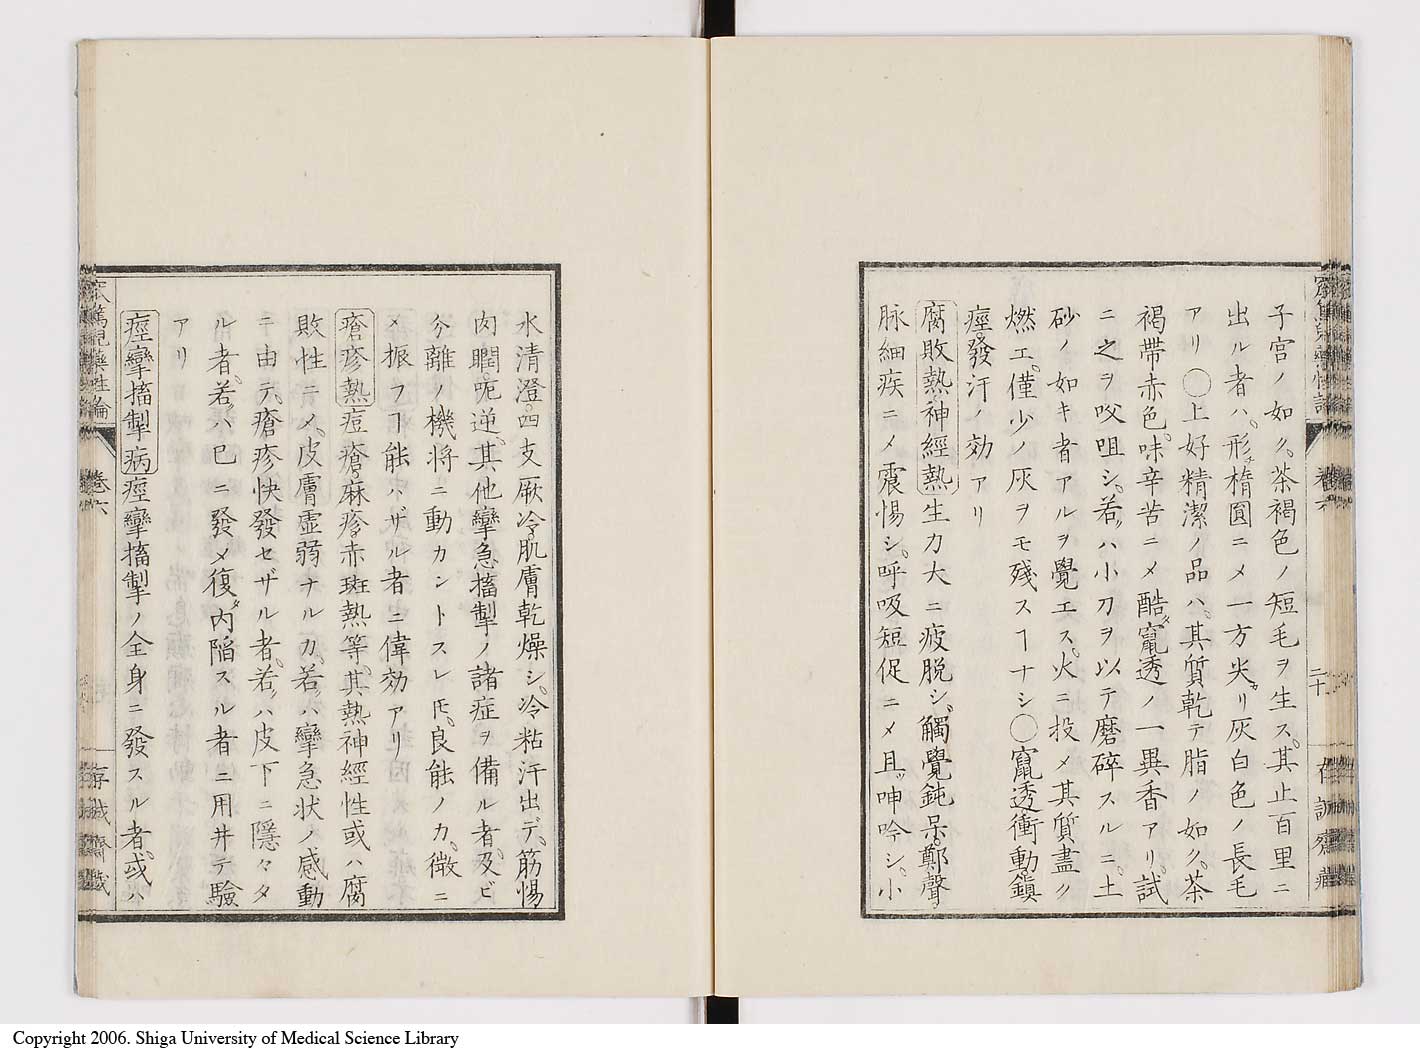 子宮ノ如ク。茶褐色ノ短毛ヲ生ス。其止百里ニ
出ル者ハ。形チ楕圓ニメ一方尖ガリ灰白色ノ長毛
アリ〇上好精潔ノ品ハ。其質乾テ脂ノ如ク。茶
褐帶赤色。味辛苦ニメ酷ダ竄透ノ一異香アリ。試
ニ之ヲ咬咀シ。若クハ小刀ヲ以テ磨碎スルニ。土
砂ノ如キ者アルヲ覺エス。火ニ投メ其質盡ク
燃エ。僅少ノ灰ヲモ殘スヿナシ〇竄透衝動鎮
痙發汗ノ効アリ
腐敗熱神經熱生力大ニ疲脱シ。觸覺鈍呆。鄭聲。
脉細疾ニメ震惕シ。呼吸短促ニメ且ツ呻吟シ。小
水清澄。四支厥冷。肌膚乾燥シ。冷粘汗出デ。筋惕
肉瞤。呃逆。其他攣急搐掣ノ諸症ヲ備ル者。及ビ
分離ノ機將ニ動カントスレ𪜈。良能ノカ。微ニ
メ振フヿ能ハザル者ニ偉効アリ
瘡疹熱痘瘡麻疹。赤斑熱等。其熱神經性或ハ腐
敗性ニメ。皮膚虚弱ナルカ。若クハ攣急状ノ感動
ニ由テ。瘡疹快發セザル者。若クハ皮下ニ隱々タ
ル者。若クハ已ニ發メ復ダ内陷スル者ニ用井テ驗
アリ
痙攣搐掣病痙攣搐掣ノ全身ニ發スル者。或ハ
窊篤兒藥性論
卷六
二十
存誠齋藏
Copyright 2006. Shiga University of Medical Science Library